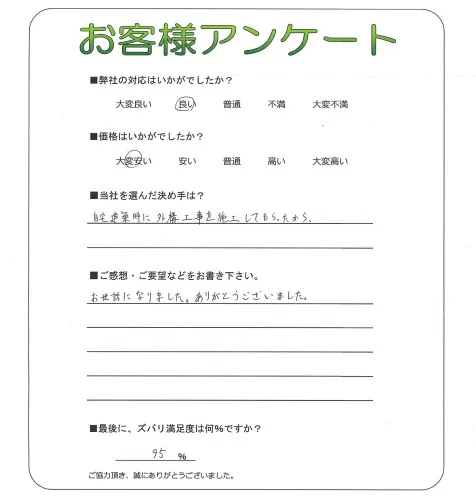 お客様アンケート
■弊社の対応はいかがでしたか？
大変良い 良い 普通 不満 大変不満
■価格はいかがでしたか？
大変安い 安い 普通 高い 大変高い
■当社を選んだ決め手は？
自宅建築時に外構工事を施工してもらったから、
■ご感想・ご要望などをお書き下さい。
お世話になりました。ありがとうございました。
■最後に、ズバリ満足度は何％ですか？
95 %
ご協力頂き、誠にありがとうございました。